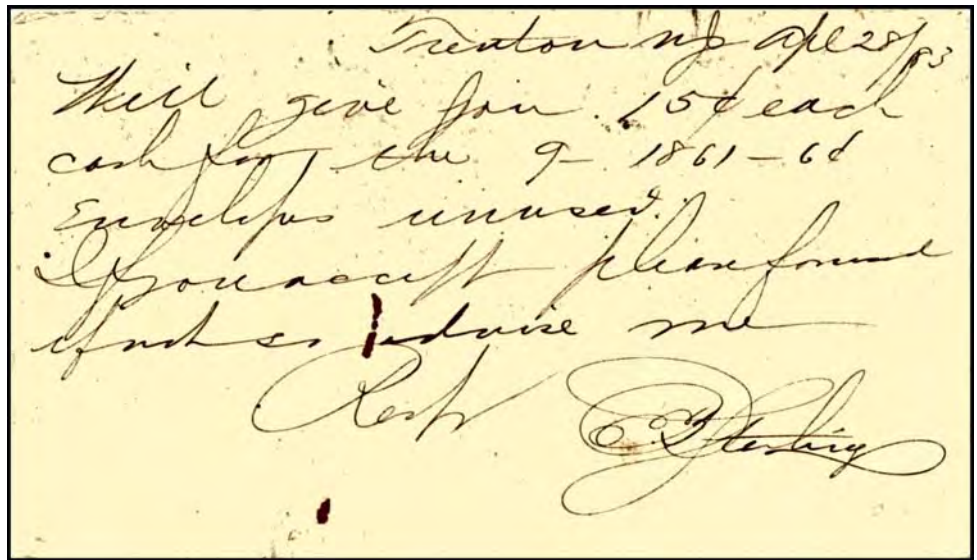 Trenton NJ Apl 28/83
Will give you 15¢ each
cash for the 9 - 1861 - 6¢
Envelopes unused.
If you accept please forward
if not so advise me
Resp
E.B. Sterling